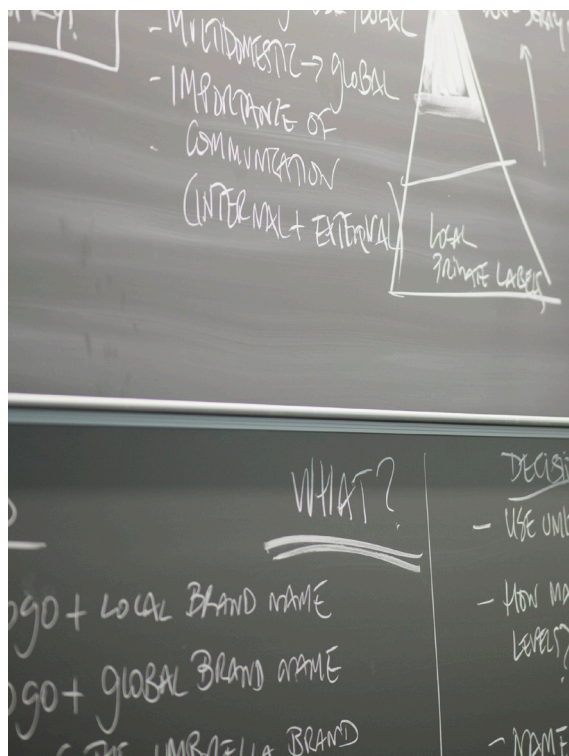 - MULTIDOMESTIC → GLOBAL
- IMPORTANCE OF
COMMUNICATION
(INTERNAL + EXTERNAL
LOCAL
PRIVATE LABELS
WHAT?
+ LOCAL BRAND NAME
+ GLOBAL BRAND NAME
THE UMBRELLA BRAND
- USE
- HOW
LEVELS?
- NAME